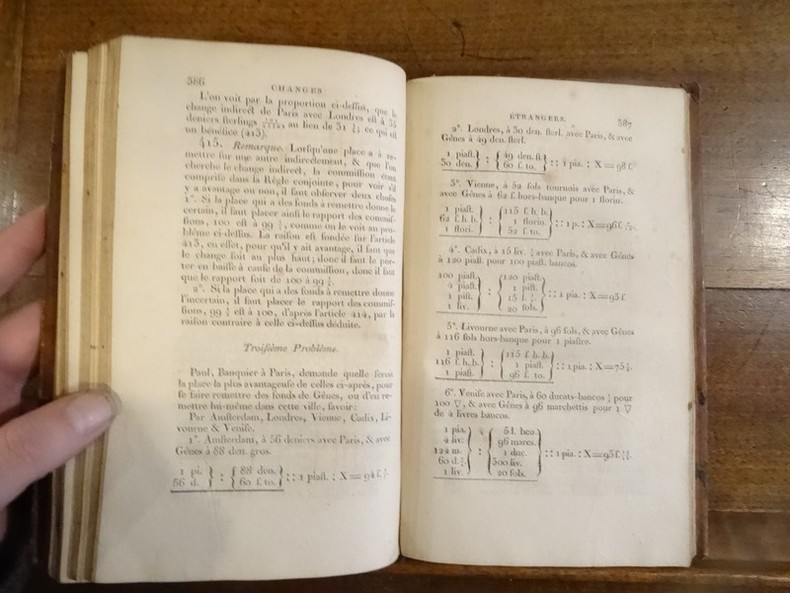 386
CHANGES
L'on voit par la proportion ci-dessus, que le
change indirect de Paris avec Londres est à
deniers sterlings au lieu de 31 ce qui est
un bénéfice (413).
415. Remarque. Lorsqu'une place a à re-
mettre sur une autre indirectement, & que l'on
cherche le change indirect, la commission étant
comprise dans la Règle conjointe, pour voir s'il
y a avantage ou non, il faut observer deux choses
1°. Si la place qui a des fonds à remettre donne le
certain, il faut placer ainsi le rapport des commis-
sions, 100 est à 99 comme on le voit au pro-
blême ci-dessus. La raison est fondée sur l'article
413, en effet, pour qu'il y ait avantage, il faut que
le change soit au plus haut; donc il faut le por-
ter en baisse à cause de la commission, donc il faut
que le rapport soit de 100 à 99
2°. Si la place qui a des fonds à remettre donne
l'incertain, il faut placer le rapport des commis-
sions, 99 est à 100, d'après l'article 414, par la
raison contraire à celle ci-dessus déduite.
Troisième Problême.
Paul, Banquier à Paris, demande quelle seroit
la place la plus avantageuse de celles ci-après, pour
se faire remettre des fonds de Gênes, ou d'en re-
mettre lui-même dans cette ville, savoir:
Par Amsterdam, Londres, Vienne, Cadix, Li-
vourne & Venise.
1°. Amsterdam, à 56 deniers avec Paris, & avec
Gênes à 88 den. gros.
1 pi. } : { 88 den. } :: 1 piast. : X = 94 f.
56 d. } { 60 f. to. }
ÉTRANGERS.
387
2°. Londres, à 30 den. sterl. avec Paris, & avec
Gênes à 49 den. sterl.
1 piast. } : { 49 den. st. } :: 1 pia. : X = 98 f.
30 den. } { 60 f. to. }
3°. Vienne, à 52 sols tournois avec Paris, &
avec Gênes à 62 f. hors-banque pour 1 florin.
1 piast. } { 115 f. h. b. }
62 f. h. b. } : { 1 florin. } :: 1 p. : X = 96 f.
1 flori. } { 52 f. to. }
4°. Cadix, à 15 liv. avec Paris, & avec Gênes
à 120 piast. pour 100 piast. bancos.
100 piast. } { 120 piast. }
4 piast. } : { 1 pist. } :: 1 pia. : X = 93 f.
1 pist. } { 15 l. }
1 liv. } { 20 sols. }
5°. Livourne avec Paris, à 96 sols, & avec Gênes
à 116 sols hors-banque pour 1 piastre.
1 piast. } { 115 f. h. b. }
116 f. h. b. } : { 1 piast. } :: 1 pia. : X =
1 piast. } { 96 f. to. }
6°. Venise avec Paris, à 60 ducats-bancos pour
100 ▽, & avec Gênes à 96 marchettis pour 1 ▽
de 4 livres bancos.
1 pia. } { 5 l. bco. }
4 liv. } { 96 marcs. }
124 m. } : { 1 duc. } :: 1 pia. : X = 95 f.
60 d. } { 300 liv. }
1 liv. } { 20 sols. }